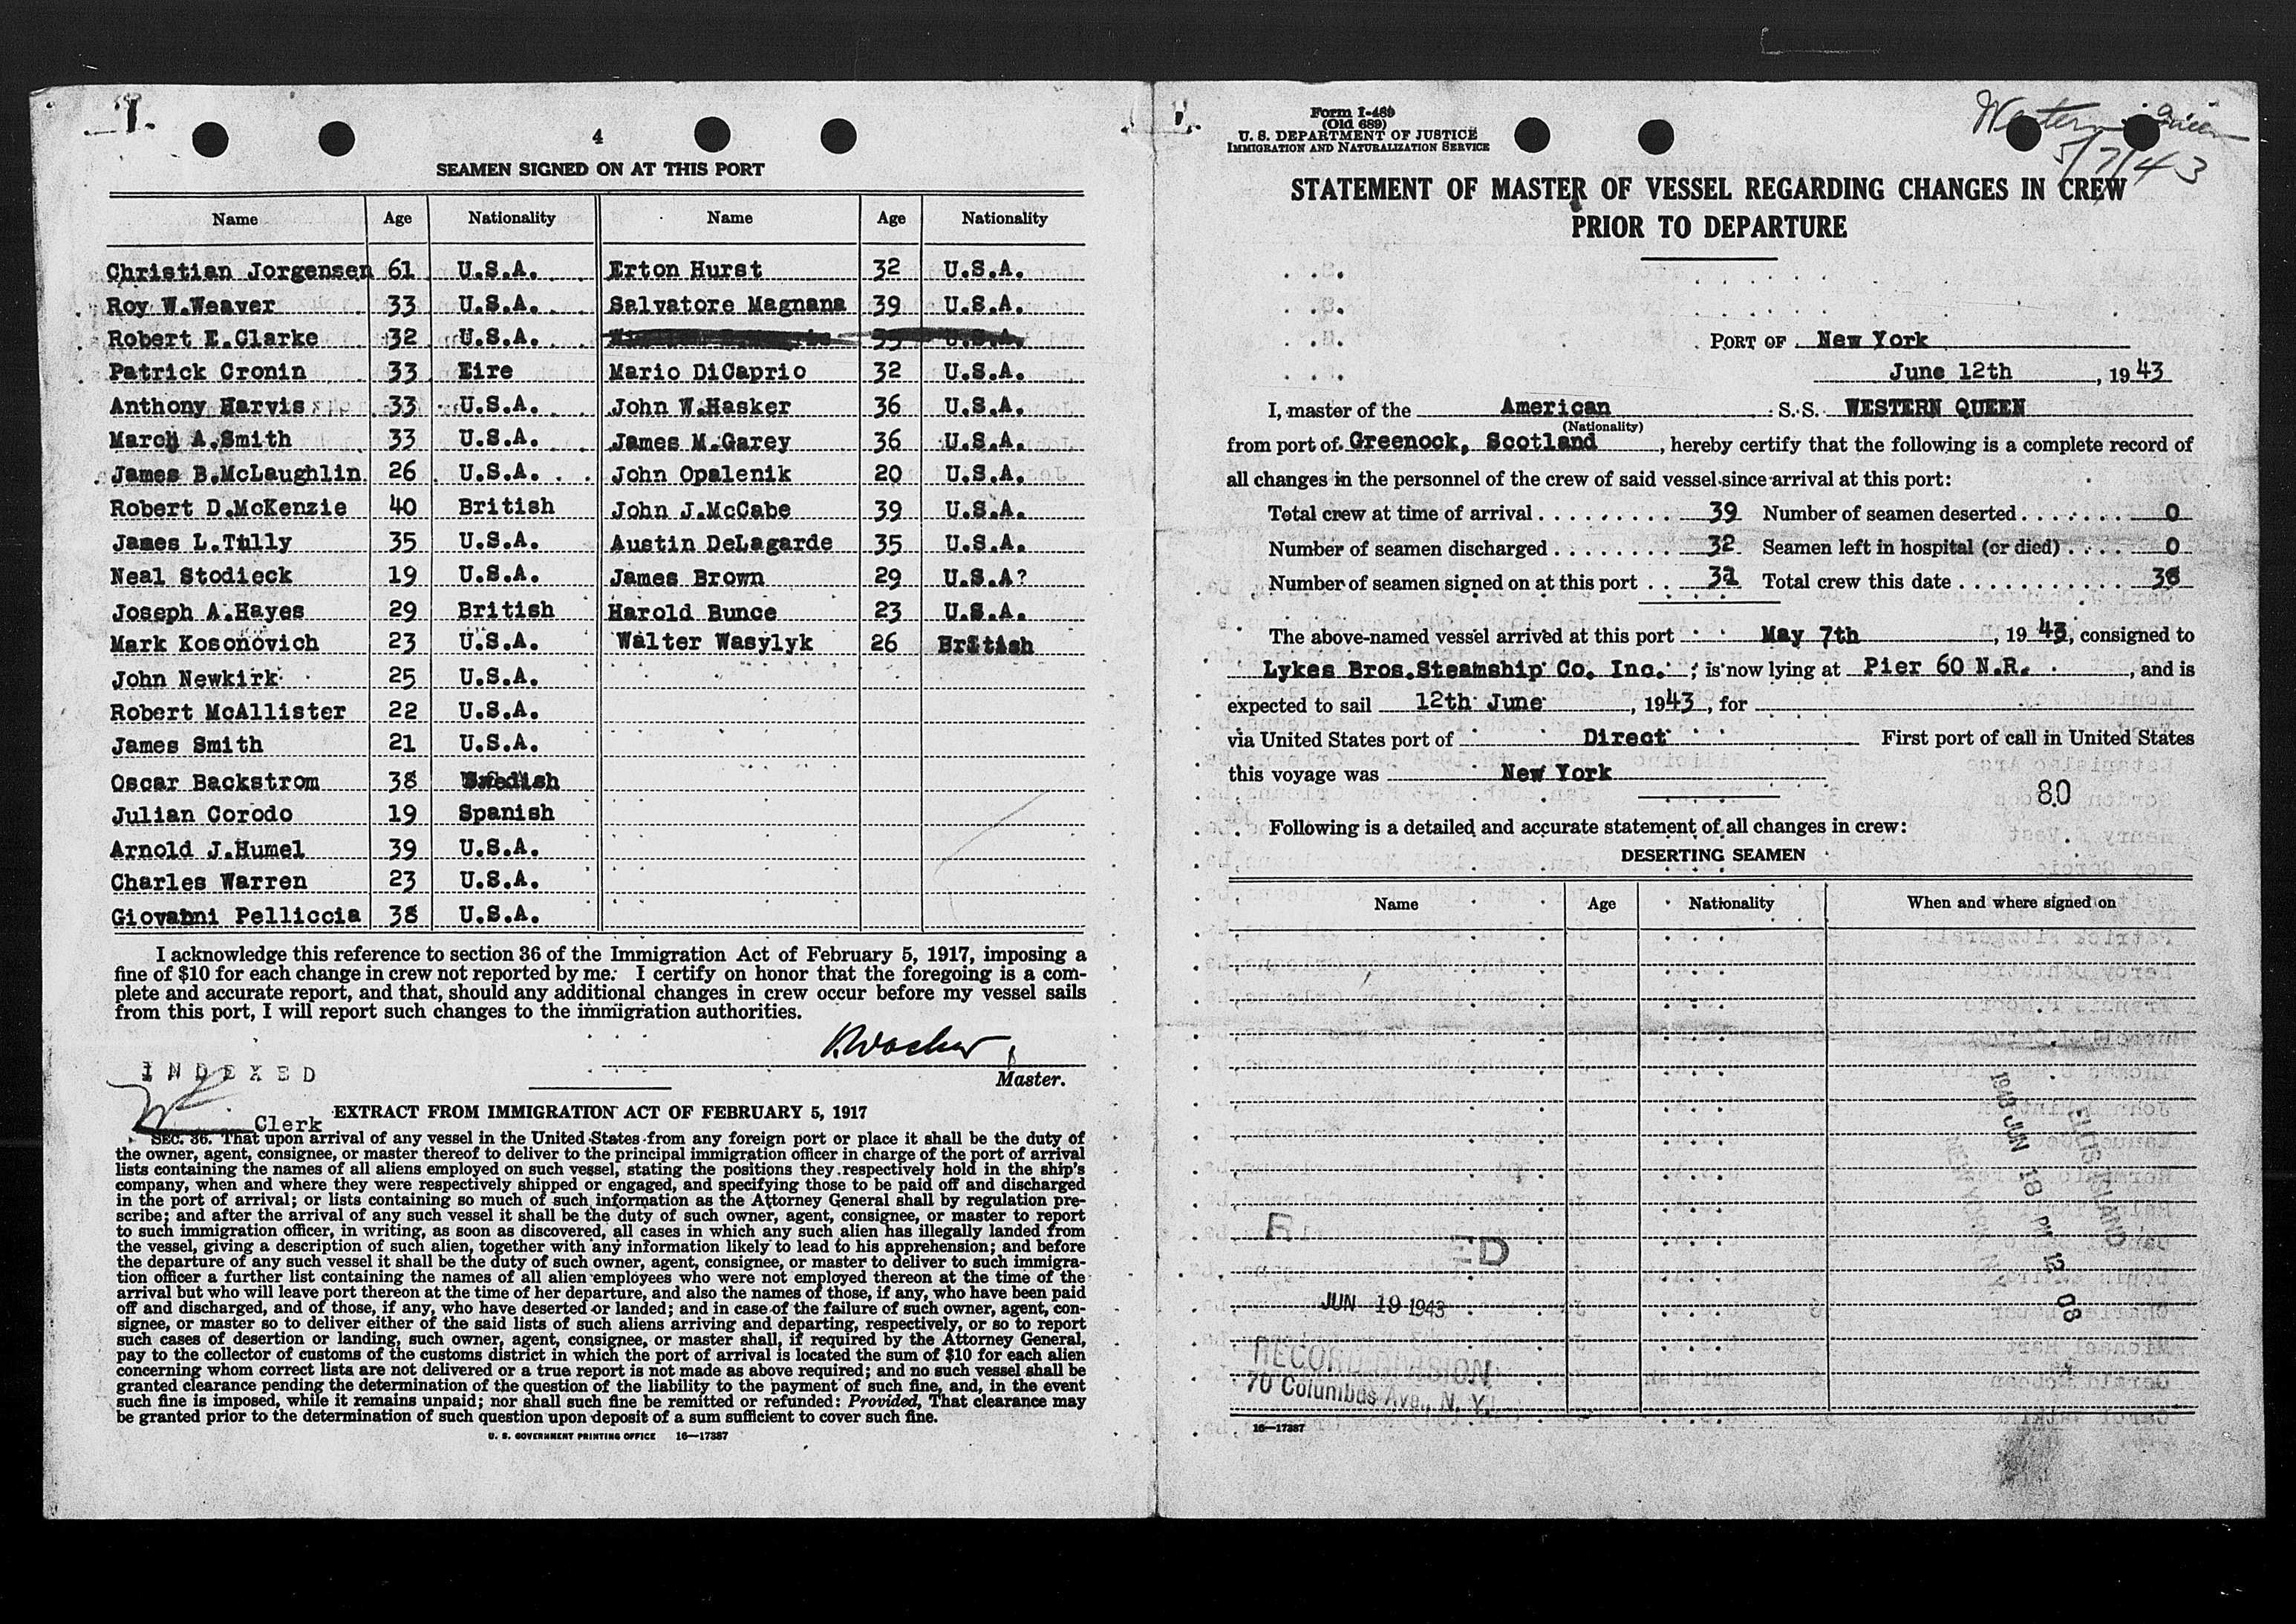 1.
4
SEAMEN SIGNED ON AT THIS PORT
Name Age Nationality Name Age Nationality
Christian Jorgensen 61 U.S.A. Erton Hurst 32 U.S.A.
Roy W.Weaver 33 U.S.A. Salvatore Magnana 39 U.S.A.
Robert E.Clarke 32 U.S.A. U.S.A.
Patrick Cronin 33 Eire Mario DiCaprio 32 U.S.A.
Anthony Harvis 33 U.S.A. John W.Hasker 36 U.S.A.
March A.Smith 33 U.S.A. James M.Garey 36 U.S.A.
James B.McLaughlin 26 U.S.A. John Opalenik 20 U.S.A.
Robert D.McKenzie 40 British John J.McCabe 39 U.S.A.
James L.Tully 35 U.S.A. Austin DeLagarde 35 U.S.A.
Neal Stodieck 19 U.S.A. James Brown 29 U.S.A?
Joseph A.Hayes 29 British Harold Bunce 23 U.S.A.
Mark Kosonovich 23 U.S.A. Walter Wasylyk 26 British
John Newkirk 25 U.S.A.
Robert McAllister 22 U.S.A.
James Smith 21 U.S.A.
Oscar Backstrom 38 Swedish
Julian Corodo 19 Spanish
Arnold J.Humel 39 U.S.A.
Charles Warren 23 U.S.A.
Giovanni Pelliccia 38 U.S.A.
I acknowledge this reference to section 36 of the Immigration Act of February 5, 1917, imposing a
fine of $10 for each change in crew not reported by me. I certify on honor that the foregoing is a com-
plete and accurate report, and that, should any additional changes in crew occur before my vessel sails
from this port, I will report such changes to the immigration authorities.
Master.
INDEXED
Clerk
EXTRACT FROM IMMIGRATION ACT OF FEBRUARY 5, 1917
SEC. 36. That upon arrival of any vessel in the United States from any foreign port or place it shall be the duty of
the owner, agent, consignee, or master thereof to deliver to the principal immigration officer in charge of the port of arrival
lists containing the names of all aliens employed on such vessel, stating the positions they respectively hold in the ship's
company, when and where they were respectively shipped or engaged, and specifying those to be paid off and discharged
in the port of arrival; or lists containing so much of such information as the Attorney General shall by regulation pre-
scribe; and after the arrival of any such vessel it shall be the duty of such owner, agent, consignee, or master to report
to such immigration officer, in writing, as soon as discovered, all cases in which any such alien has illegally landed from
the vessel, giving a description of such alien, together with any information likely to lead to his apprehension; and before
the departure of any such vessel it shall be the duty of such owner, agent, consignee, or master to deliver to such immigra-
tion officer a further list containing the names of all alien employees who were not employed thereon at the time of the
arrival but who will leave port thereon at the time of her departure, and also the names of those, if any, who have been paid
off and discharged, and of those, if any, who have deserted or landed; and in case of the failure of such owner, agent, con-
signee, or master so to deliver either of the said lists of such aliens arriving and departing, respectively, or so to report
such cases of desertion or landing, such owner, agent, consignee, or master shall, if required by the Attorney General,
pay to the collector of customs of the customs district in which the port of arrival is located the sum of $10 for each alien
concerning whom correct lists are not delivered or a true report is not made as above required; and no such vessel shall be
granted clearance pending the determination of the question of the liability to the payment of such fine, and, in the event
such fine is imposed, while it remains unpaid; nor shall such fine be remitted or refunded: Provided, That clearance may
be granted prior to the determination of such question upon deposit of a sum sufficient to cover such fine.
U. S. GOVERNMENT PRINTING OFFICE 16—17387
Form I-489
(Old 689)
U. S. DEPARTMENT OF JUSTICE
IMMIGRATION AND NATURALIZATION SERVICE
Western Queen
5/7/43
STATEMENT OF MASTER OF VESSEL REGARDING CHANGES IN CREW
PRIOR TO DEPARTURE
PORT OF New York
June 12th, 1943
I, master of the American S. S. WESTERN QUEEN
(Nationality)
from port of Greenock, Scotland, hereby certify that the following is a complete record of
all changes in the personnel of the crew of said vessel since arrival at this port:
Total crew at time of arrival . . . . . . . . . 39 Number of seamen deserted . . . . . . . 0
Number of seamen discharged . . . . . . . . 32 Seamen left in hospital (or died) . . . . 0
Number of seamen signed on at this port . . 31 Total crew this date . . . . . . . . . . . . 38
The above-named vessel arrived at this port May 7th, 1943, consigned to
Lykes Bros.Steamship Co. Inc. ; is now lying at Pier 60 N.R., and is
expected to sail 12th June, 1943, for
via United States port of Direct First port of call in United States
this voyage was New York
80
Following is a detailed and accurate statement of all changes in crew:
DESERTING SEAMEN
Name Age Nationality When and where signed on
1943 JUN 18 PM 12 08
ELLIS ISLAND
NEW YORK, N.Y.
R ED
JUN 19 1943
RECORD DIVISION
70 Columbus Ave., N. Y.
16—17387